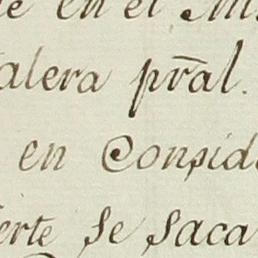 e en el M
alera pral.
en Consid
erte se saca